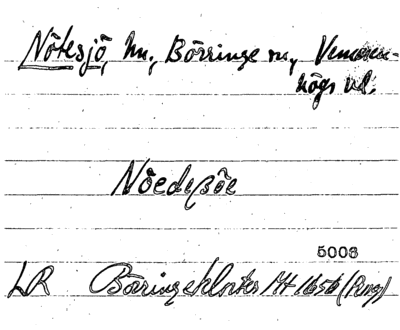 Nötesjö, hn., Börringe sn, Vemmen-
högs hd.
Nöedesöe
5006
LR Börringekloster Mt 1656 (Ping)